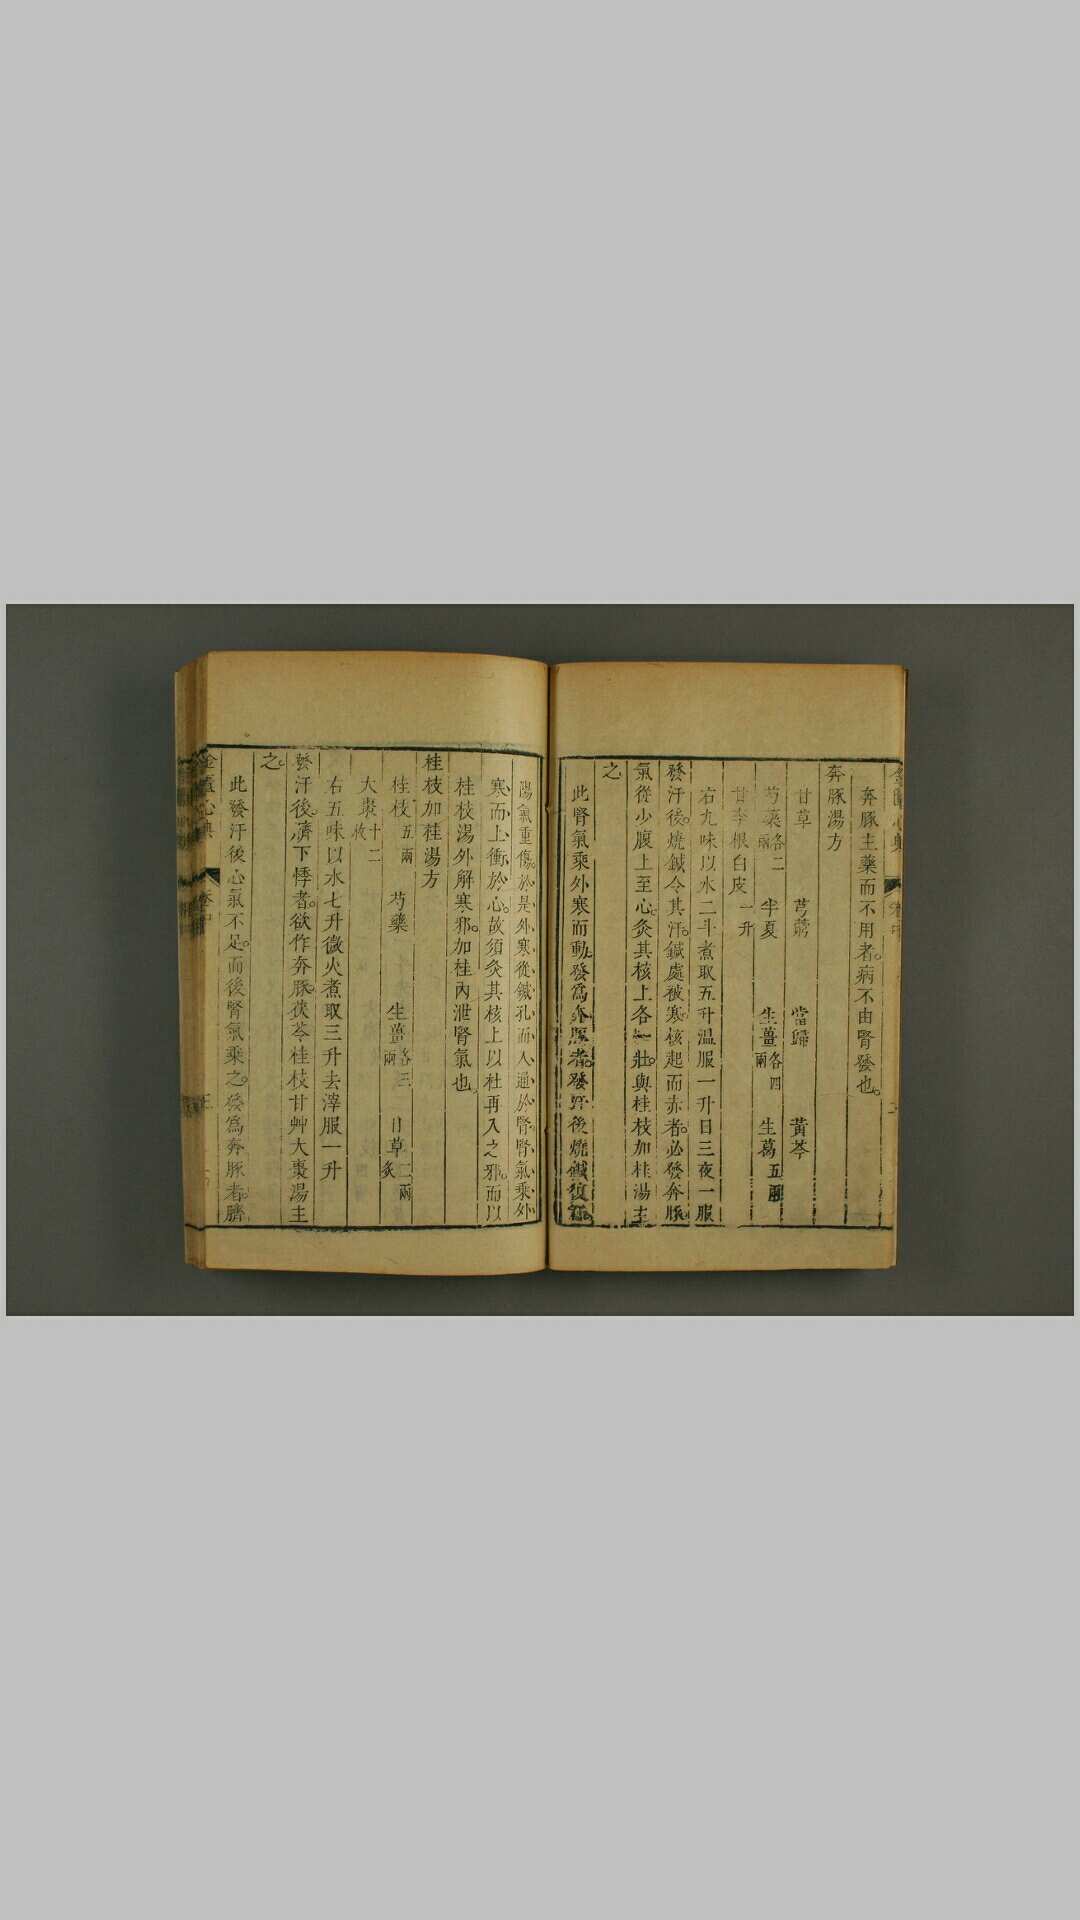 奔豚主藥而不用者。病不由腎發也。
奔豚湯方
甘草 芎藭 當歸 黃芩
芍藥各二兩 半夏 生薑各四兩 生葛五兩
甘李根白皮一升
右九味以水二斗煮取五升溫服一升日三夜一服
發汗後。燒鍼令其汗。鍼處被寒。核起而赤者。必發奔豚。
氣從少腹上至心。灸其核上各一壯。與桂枝加桂湯主
之
此腎氣乘外寒而動。發為奔豚者。發汗後燒鍼復汗。
陽氣重傷。於是外寒從鍼孔而入通於腎。腎氣乘外
寒而上衝於心。故須灸其核上以杜再入之邪。而以
桂枝湯外解寒邪。加桂內泄腎氣也。
桂枝加桂湯方
桂枝五兩 芍藥 生薑各三兩 甘草二兩炙
大棗十二枚
右五味以水七升微火煮取三升去滓服一升
發汗後。臍下悸者。欲作奔豚。茯苓桂枝甘艸大棗湯主
之。
此發汗後心氣不足。而後腎氣乘之。發為奔豚者。臍
金匱心典 卷中